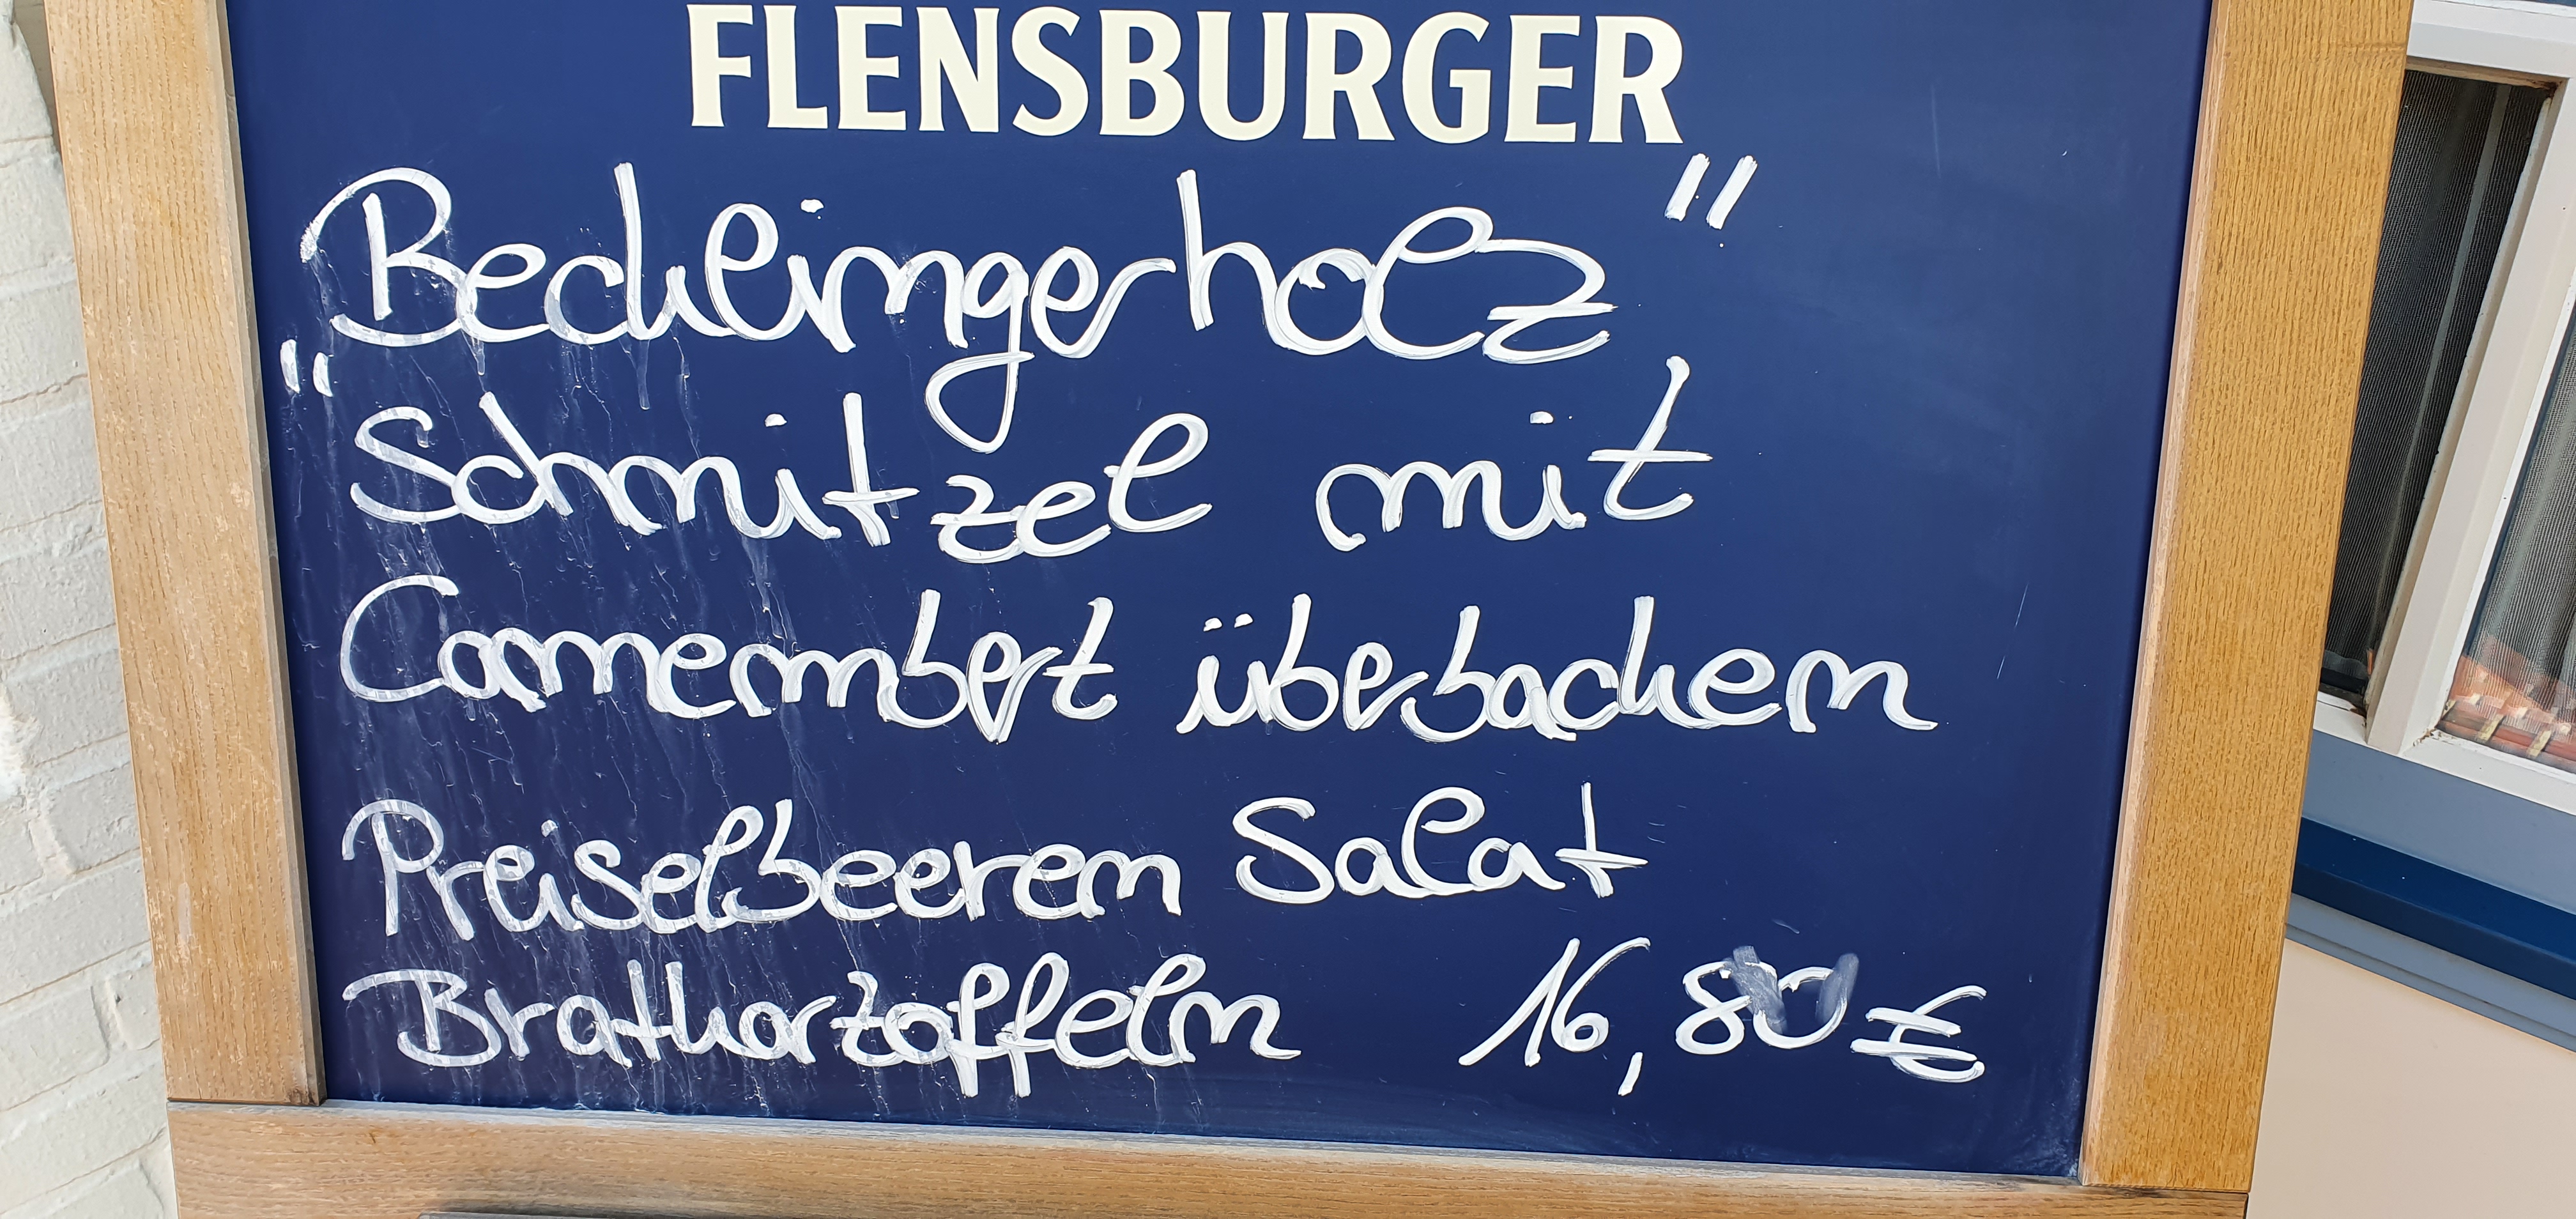 FLENSBURGER
„Becklingerholz"
Schnitzel mit
Camembert überbacken
Preiselbeeren Salat
Bratkartoffeln 16,80€